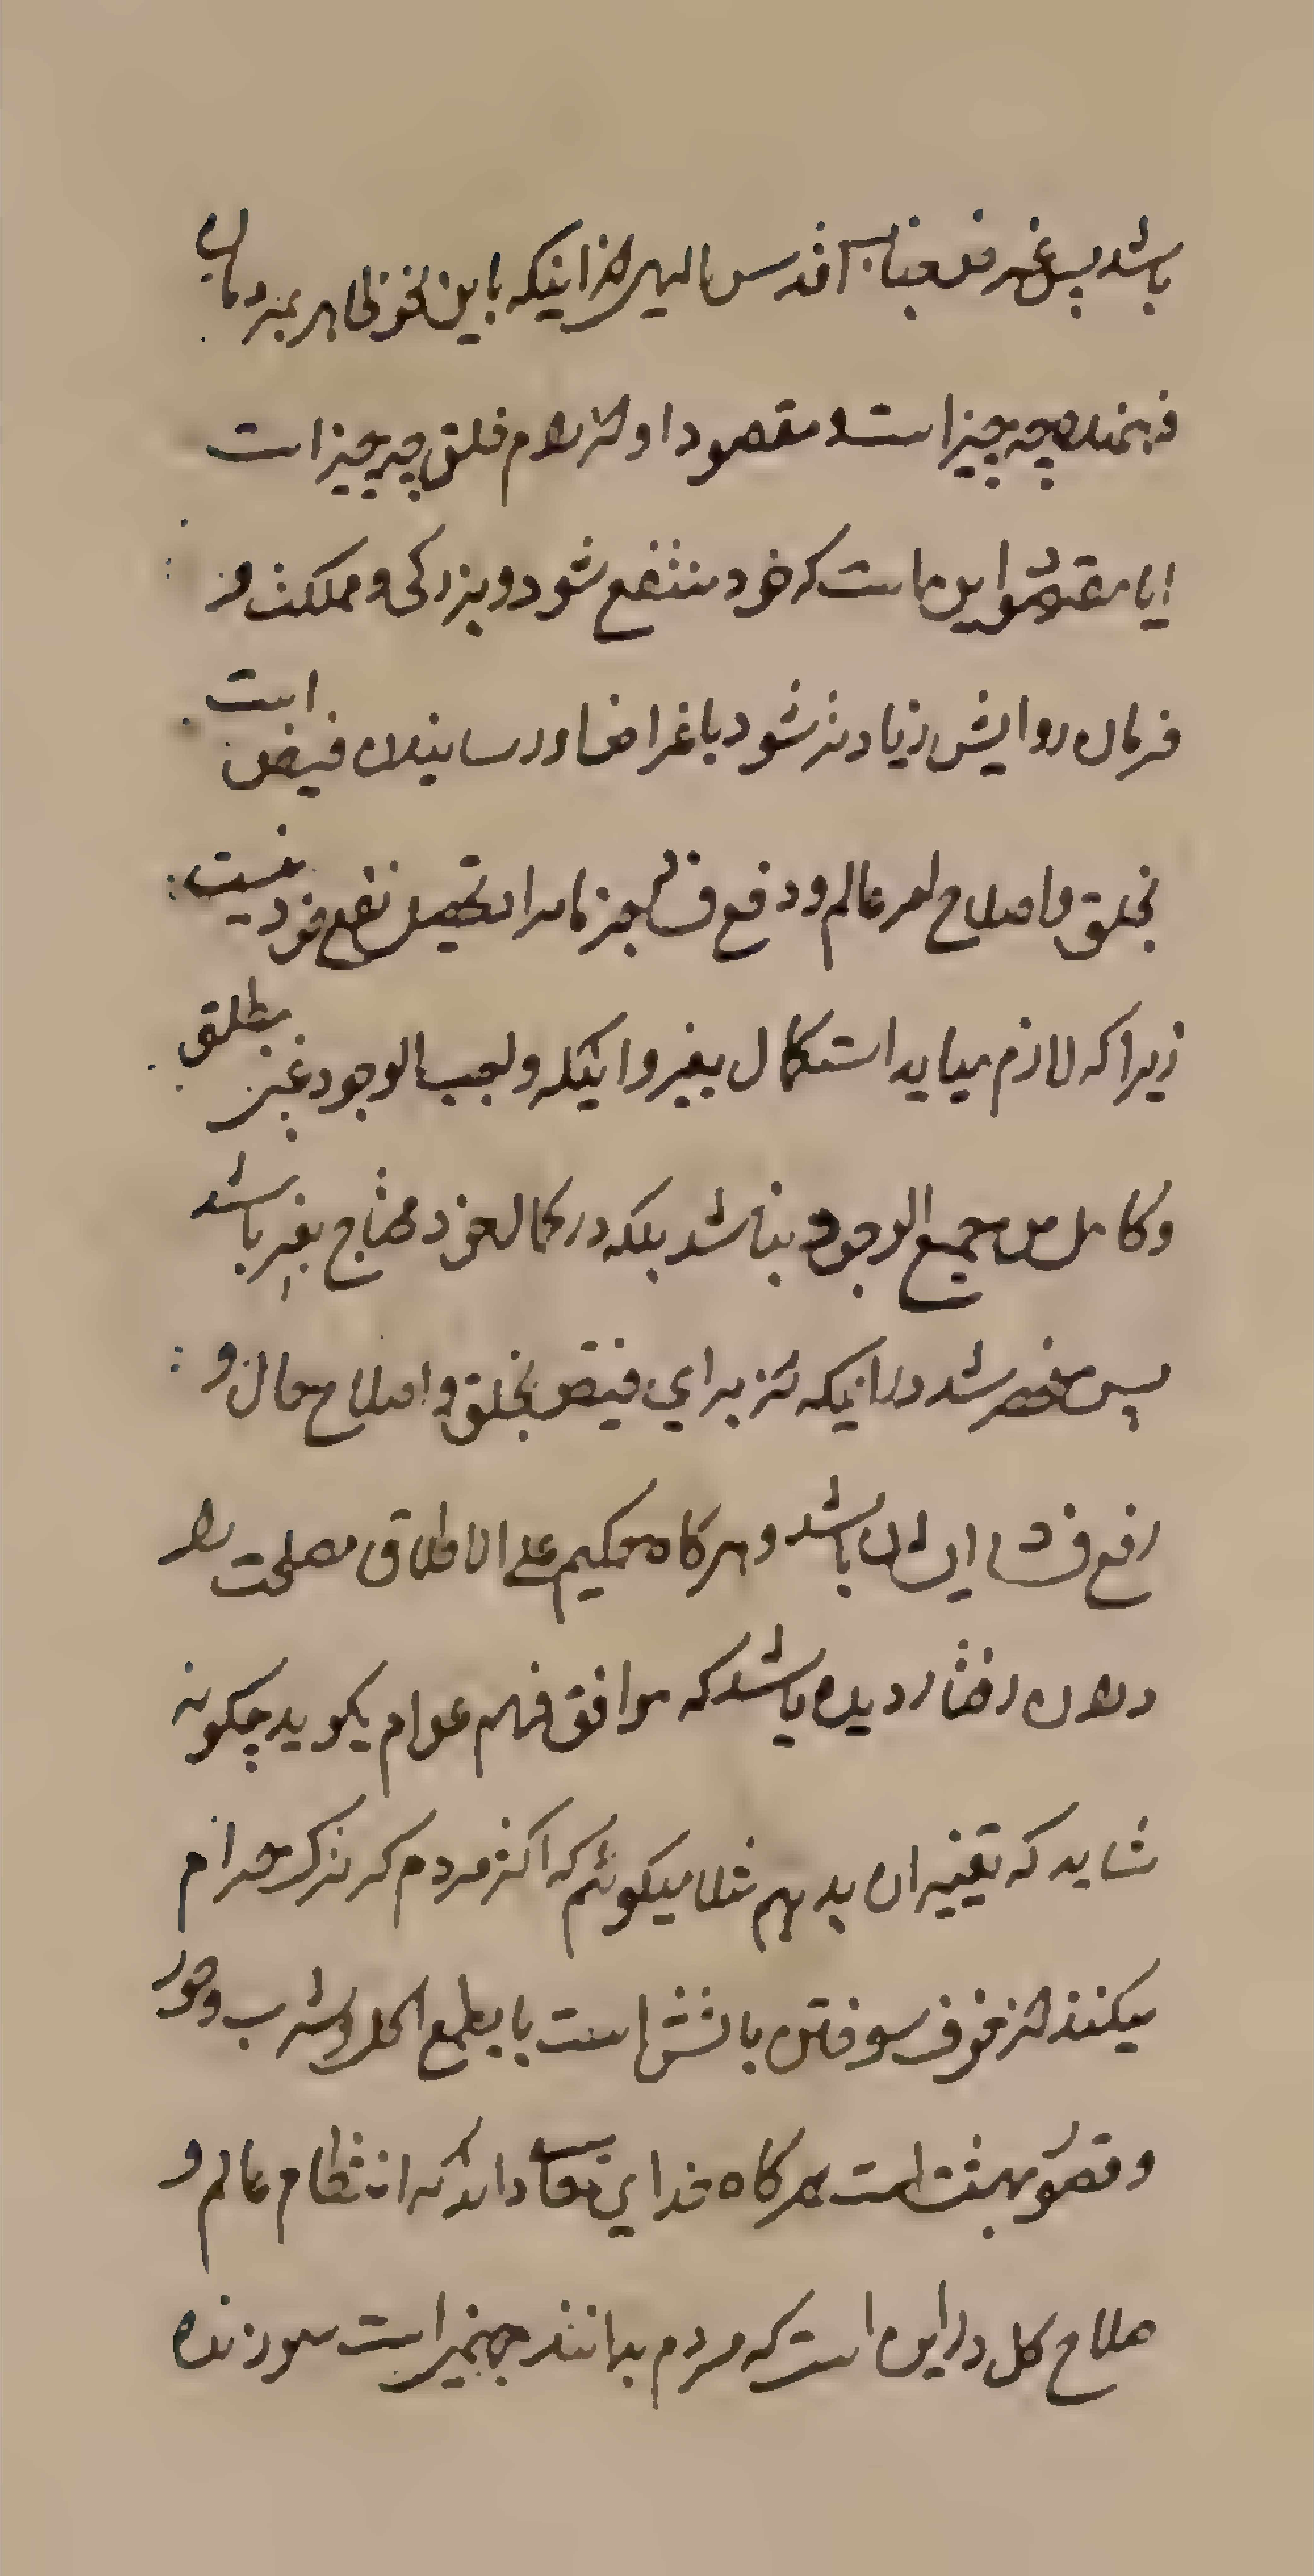 باشد پس غرض جناب اقدس الهی از اینکه باین نحو ظاهر بمردمان
فهمند چه چیز است و مقصود او از کلام خلق چه چیز است
ایا مقصودش این است که خود منتفع شود و بزرکی و مملکت و
فرمان روایش زیادتر شود یا غرض او رسانیدن فیض است
بخلق و اصلاح امر عالم و دفع فساد جزما مراد تحصیل نفع خود نیست
زیرا که لازم میاید استکمال بغیر و اینکه واجب الوجود غنی مطلق
و کامل من جمیع الوجوه نباشد بلکه در کمال خود محتاج بغیر باشد
پس منحصر شد در اینکه از برای فیض بخلق و اصلاح حال و
رفع فساد ایشان باشد و هرکاه حکیم علی الاطلاق مصلحت را
در ان رفتار دیده باشد که موافق فهم عوام بکوید چکونه
شاید که تغییر ان بدهیم مثلا میکوئیم که اکثر مردم که ترک حرام
میکنند از خوف سوختن باتش است یا بطمع اکل و شرب و حور
و قصور بهشت است هرکاه خدای تعالی داند که انتظام عالم و
صلاح کل در این است که مردم بدانند جهنمی است سوزنده